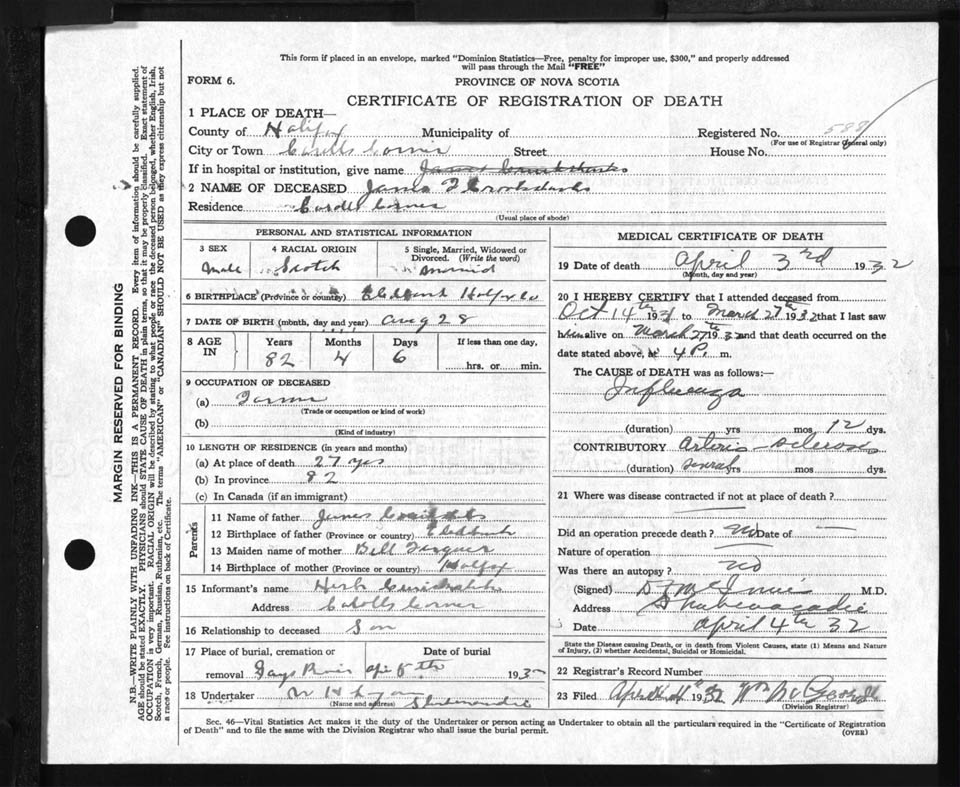 This form if placed in an envelope, marked "Dominion Statistics—Free, penalty for improper use, $300," and properly addressed
will pass through the Mail "FREE"
FORM 6.
PROVINCE OF NOVA SCOTIA
CERTIFICATE OF REGISTRATION OF DEATH
1 PLACE OF DEATH—
County of Halifax Municipality of Registered No. 588
(For use of Registrar General only)
City or Town Street House No.
If in hospital or institution, give name
2 NAME OF DECEASED James
Residence
(Usual place of abode)
PERSONAL AND STATISTICAL INFORMATION
3 SEX 4 RACIAL ORIGIN 5 Single, Married, Widowed or Divorced. (Write the word)
Male Scotch Married
6 BIRTHPLACE (Province or country) Halfx Co
7 DATE OF BIRTH (month, day and year) Aug 28
8 AGE IN Years Months Days If less than one day,
82 4 6 hrs. or min.
9 OCCUPATION OF DECEASED
(a) Farmer
(Trade or occupation or kind of work)
(b)
(Kind of industry)
10 LENGTH OF RESIDENCE (in years and months)
(a) At place of death 27 yrs
(b) In province 82
(c) In Canada (if an immigrant)
Parents
11 Name of father James
12 Birthplace of father (Province or country)
13 Maiden name of mother Bell
14 Birthplace of mother (Province or country) Halfax
15 Informant's name Herb
Address Corner
16 Relationship to deceased Son
17 Place of burial, cremation or removal Date of burial
Gays River 1932
18 Undertaker
(Name and address)
MEDICAL CERTIFICATE OF DEATH
19 Date of death April 3rd 1932
(Month, day and year)
20 I HEREBY CERTIFY that I attended deceased from
Oct 14th 1931 to March 27th 1932 and that I last saw
him alive on March 27th 1932 and that death occurred on the
date stated above, at 4 P. m.
The CAUSE of DEATH was as follows:—
Influenza
(duration) yrs mos 12 dys.
CONTRIBUTORY Arterio sclerosis
(duration) several yrs mos dys.
21 Where was disease contracted if not at place of death?
Did an operation precede death? No Date of
Nature of operation
Was there an autopsy? No
(Signed) M.D.
Address Shubenacadie
Date April 4th 32
State the Disease causing Death, or in death from Violent Causes, state (1) Means and Nature
of Injury, (2) whether Accidental, Suicidal or Homicidal.
22 Registrar's Record Number
23 Filed April 1932
(Division Registrar)
Sec. 46—Vital Statistics Act makes it the duty of the Undertaker or person acting as Undertaker to obtain all the particulars required in the "Certificate of Registration
of Death" and to file the same with the Division Registrar who shall issue the burial permit. (OVER)
MARGIN RESERVED FOR BINDING
N.B.—WRITE PLAINLY WITH UNFADING INK—THIS IS A PERMANENT RECORD. Every item of information should be carefully supplied.
AGE should be stated EXACTLY. PHYSICIANS should STATE CAUSE OF DEATH in plain terms, so that it may be properly classified. Exact statement of
OCCUPATION is very important. RACIAL ORIGIN will be described by stating to what people or race the deceased person belonged, whether English, Irish,
Scotch, French, German, Russian, Ruthenian, etc. The terms "AMERICAN" or "CANADIAN" SHOULD NOT BE USED as they express citizenship but not
a race or people. See instructions on back of Certificate.